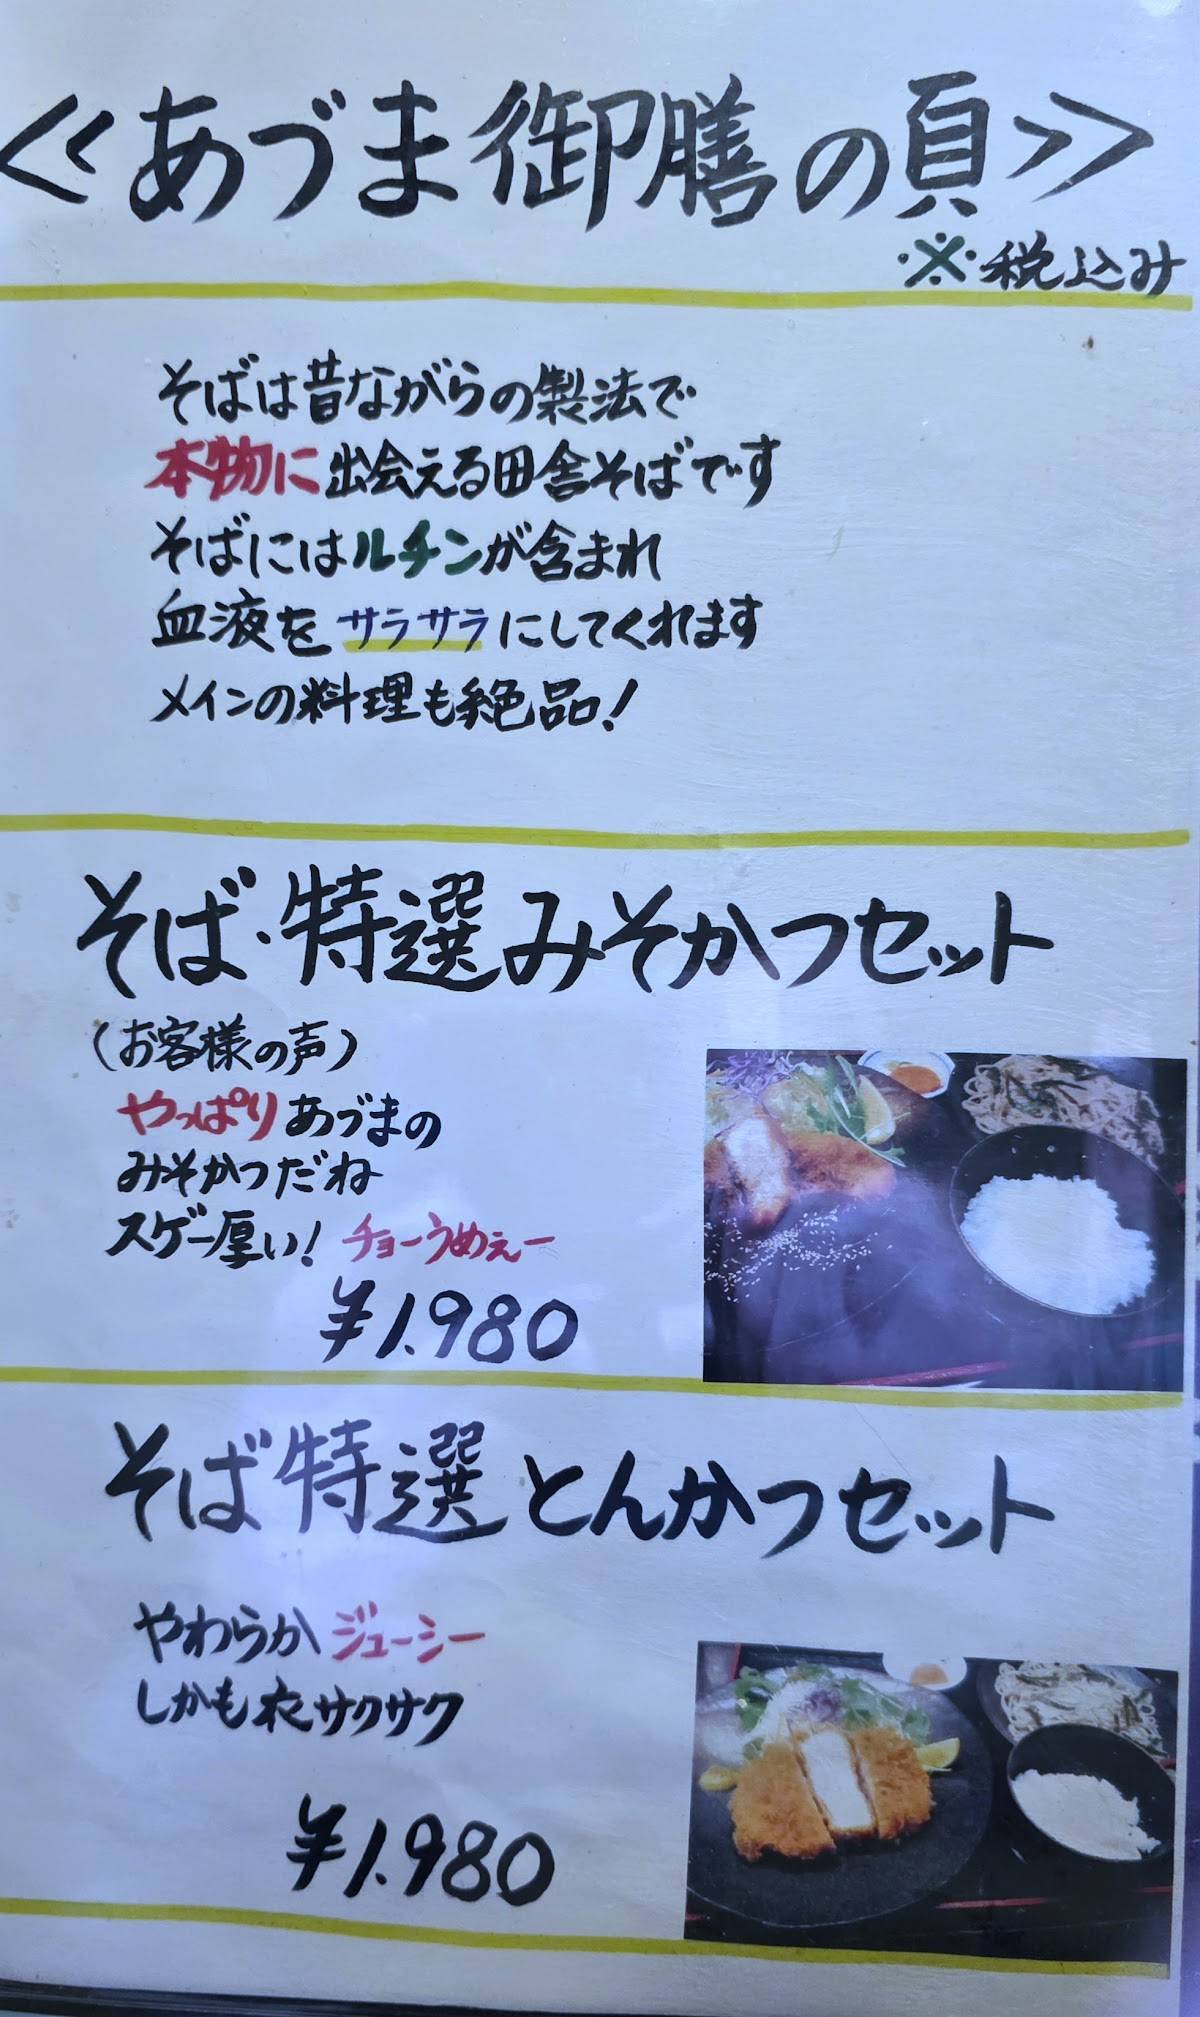 <<あづま御膳の頁>>
※税込み
そばは昔ながらの製法で
本物に出会える田舎そばです
そばにはルチンが含まれ
血液をサラサラにしてくれます
メインの料理も絶品!
そば・特選みそかつセット
(お客様の声)
やっぱりあづまの
みそかつだね
スゲー厚い! チョーうめぇー
¥1.980
そば特選とんかつセット
やわらか ジューシー
しかも衣サクサク
¥1.980